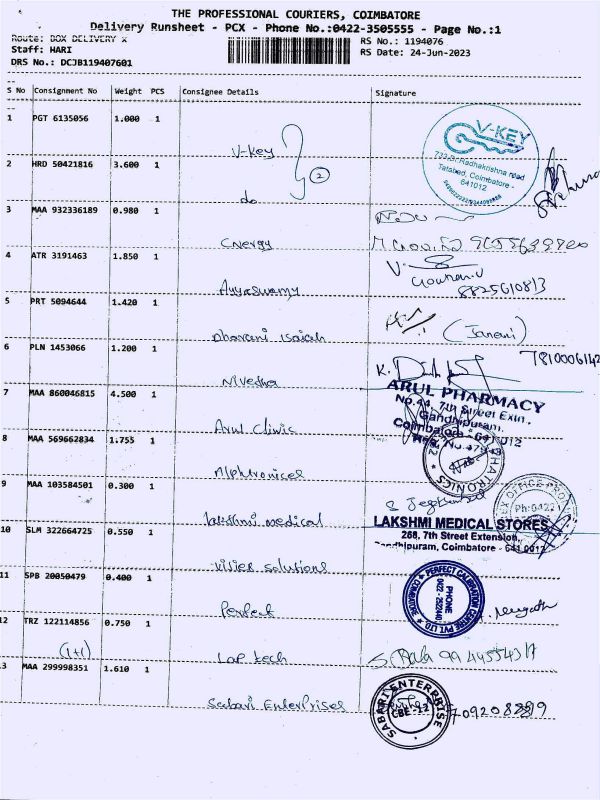 THE PROFESSIONAL COURIERS, COIMBATORE
Delivery Runsheet - PCX - Phone No.:0422-3505555 - Page No.:1
Route: BOX DELIVERY X
RS No.: 1194076
Staff: HARI
RS Date: 24-Jun-2023
DRS No.: DCJB119407601
S No Consignment No Weight PCS Consignee Details Signature
1 PGT 6135056 1.000 1
V-Key
V-KEY
733-B, Radhakrishna road
Tatabad, Coimbatore -
641012
2 HRD 50421816 3.600 1
2
do
3 MAA 932336189 0.980 1
Cnergy
4 ATR 3191463 1.850 1
Ayyaswamy
Gowtham.V
8825610813
5 PRT 5094644 1.420 1
Dharani Isaiah
(Janani)
6 PLN 1453066 1.200 1
7810006142
Nivedha
K.
7 MAA 860046815 4.500 1
ARUL PHARMACY
No.44, 7th Street Extn.,
Gandhipuram,
Coimbatore - 641 012
Arul Clinic
8 MAA 569662834 1.755 1
9 MAA 103584501 0.300 1
Lakshmi medical
Ph:0422
LAKSHMI MEDICAL STORES
268, 7th Street Extension,
Gandhipuram, Coimbatore - 641 0012
10 SLM 322664725 0.550 1
solutions
11 SPB 20050479 0.400 1
Perfect
PERFECT CALIBRATION CENTRE PVT LTD
COIMBATORE
PHONE
0422 - 252440
12 TRZ 122114856 0.750 1
(1+1)
Lap tech
S. Bala
13 MAA 299998351 1.610 1
Sabari Enterprises
SABARI ENTERPRISE
CBE-12